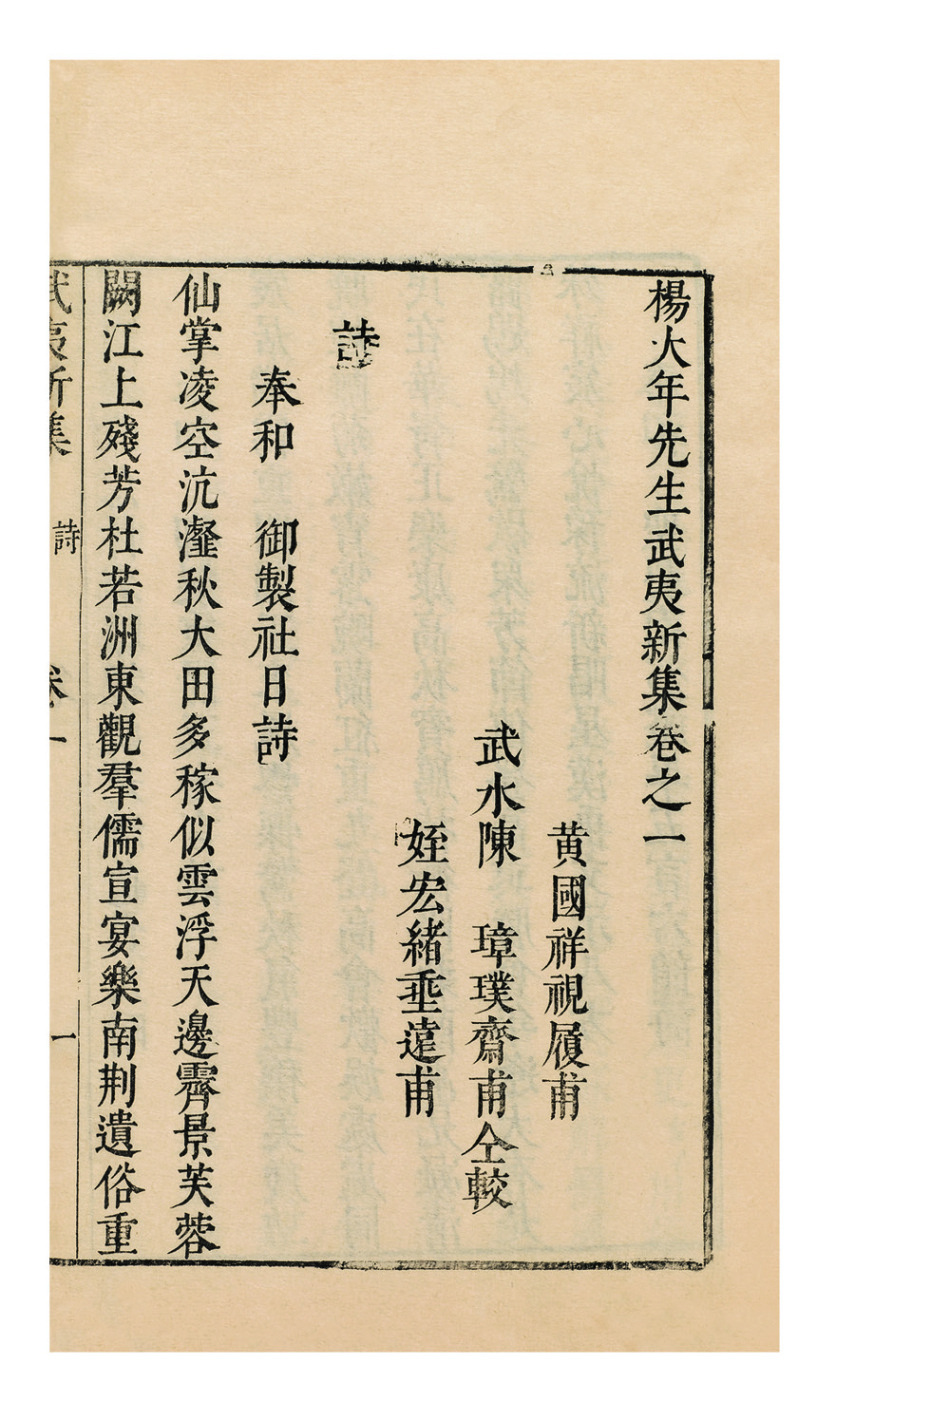 楊大年先生武夷新集卷之一
黄國祥視履甫
武水陳　璋璞齋甫仝較
姪宏緒埀遠甫
詩
奉和　御製社日詩
仙掌凌空沆瀣秋大田多稼似雲浮天邊霽景芙蓉
闕江上殘芳杜若洲東觀羣儒宣宴樂南荆遺俗重
武夷新集　詩　卷一　一